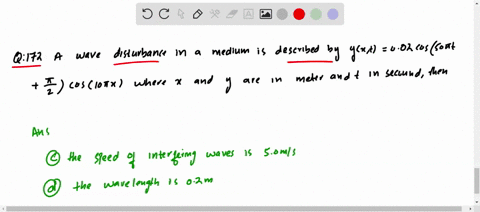 Q:172 A wave disturbance in a medium is described by y(x,t) = 0.02 cos(50πt
+ π/2) cos(10πx) where x and y are in meter and t in second, then
Ans
c the speed of interfeing waves is 5.0m/s
d the wavelength is 0.2m